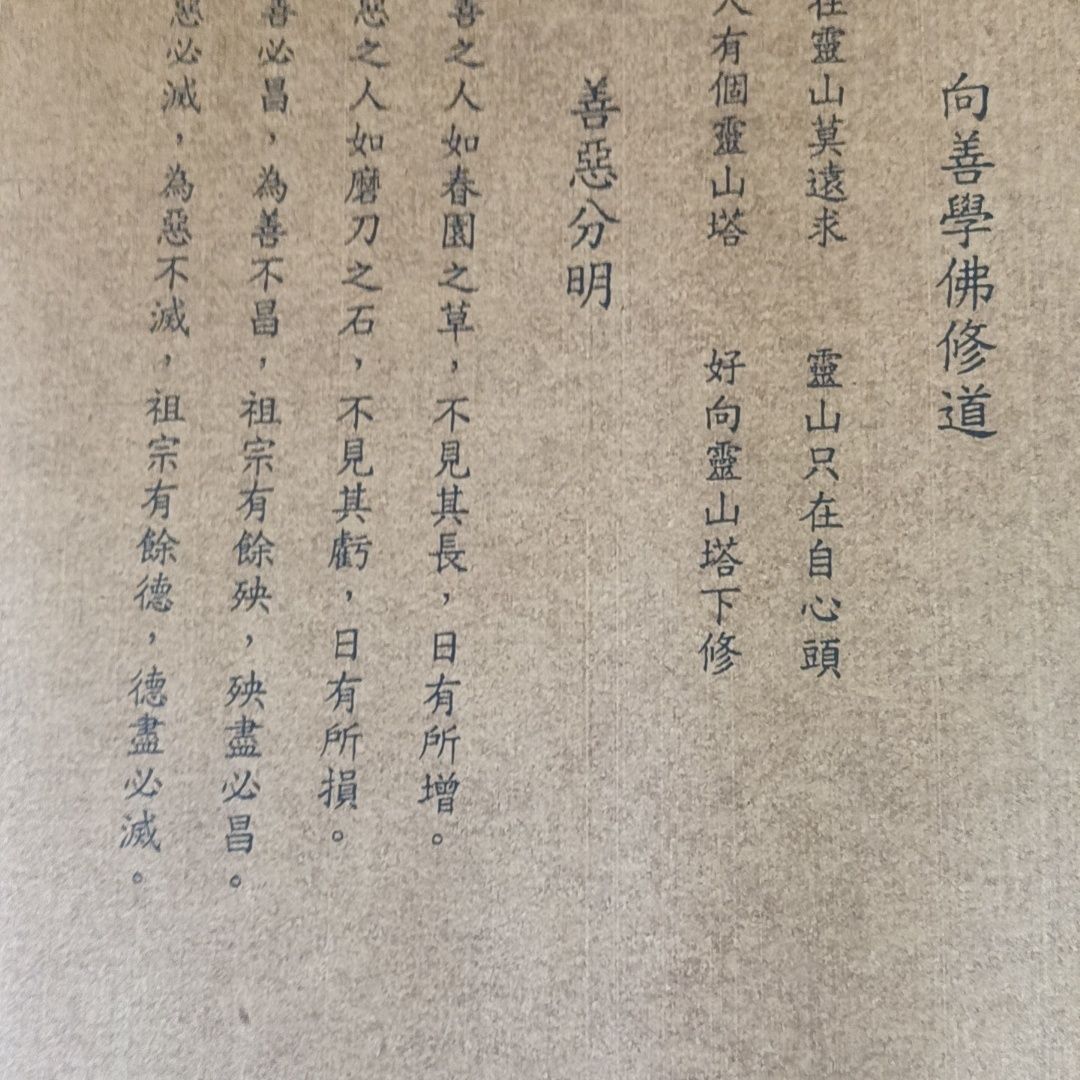 向善學佛修道
在靈山莫遠求　靈山只在自心頭
人有個靈山塔　好向靈山塔下修
善惡分明
善之人如春園之草，不見其長，日有所增。
惡之人如磨刀之石，不見其虧，日有所損。
善必昌，為善不昌，祖宗有餘殃，殃盡必昌。
惡必滅，為惡不滅，祖宗有餘德，德盡必滅。